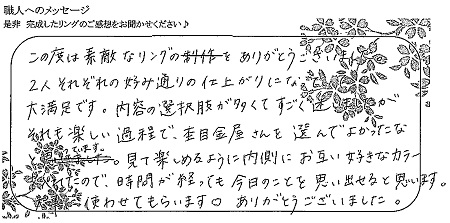 職人へのメッセージ
是非 完成したリングのご感想をお聞かせください♪
この度は素敵なリングの制作をありがとうござい
2人それぞれの好み通りの仕上がりにな
大満足です。内容の選択肢が多くてすごく が
それも楽しい過程で、杢目金屋さんを選んでよかったな
と 。見て楽しめるように内側にお互い好きなカラー
れたので、時間が経っても今日のことを思い出せると思います。
使わせてもらいます○ ありがとうございました。